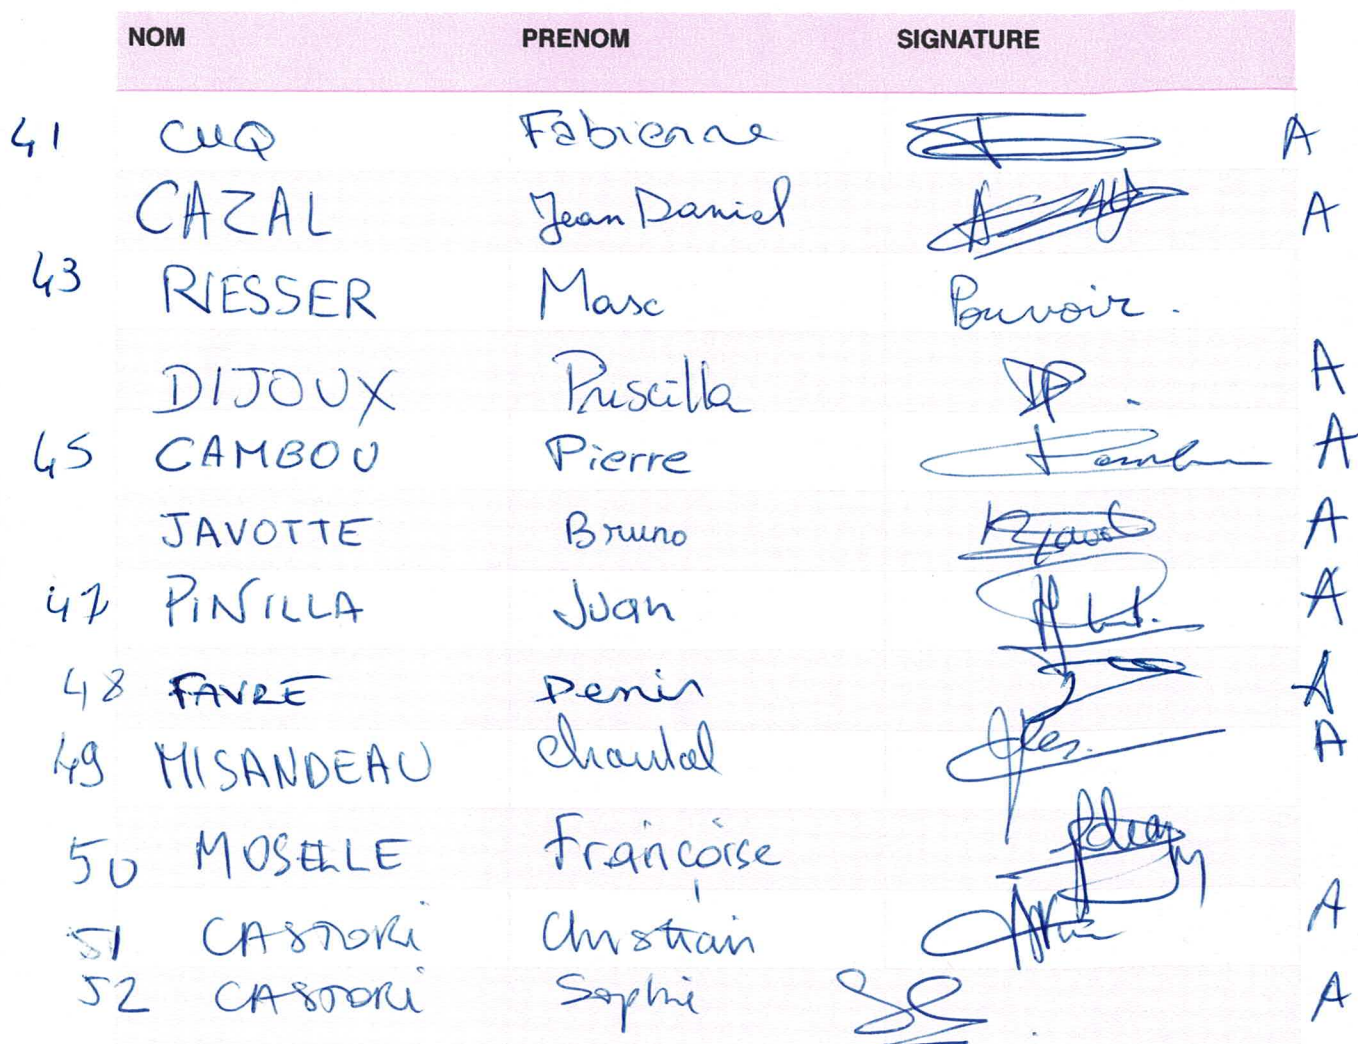 NOM PRENOM SIGNATURE
41 CUQ Fabienne A
CAZAL Jean Daniel A
43 RIESSER Marc Pouvoir.
DIJOUX Priscilla DP. A
45 CAMBOU Pierre A
JAVOTTE Bruno A
47 PINILLA Juan A
48 FAVRE Denis A
49 MISANDEAU Chantal A
50 MOSELLE Françoise
51 CASTORi Christian A
52 CASTORi Sophie A